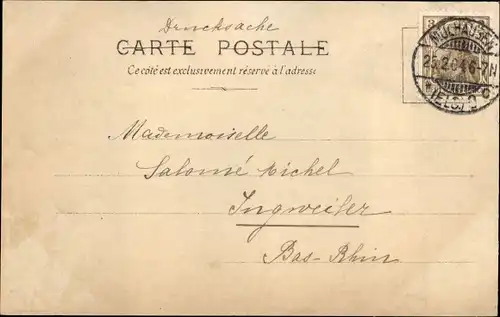 Drucksache
CARTE POSTALE
Ce côté est exclusivement réservé à l'adresse
3
MÜLHAUSEN
25.2.04.6-7N
(ELS.)
Mademoiselle
Salomé Michel
Ingweiler
Bas-Rhin